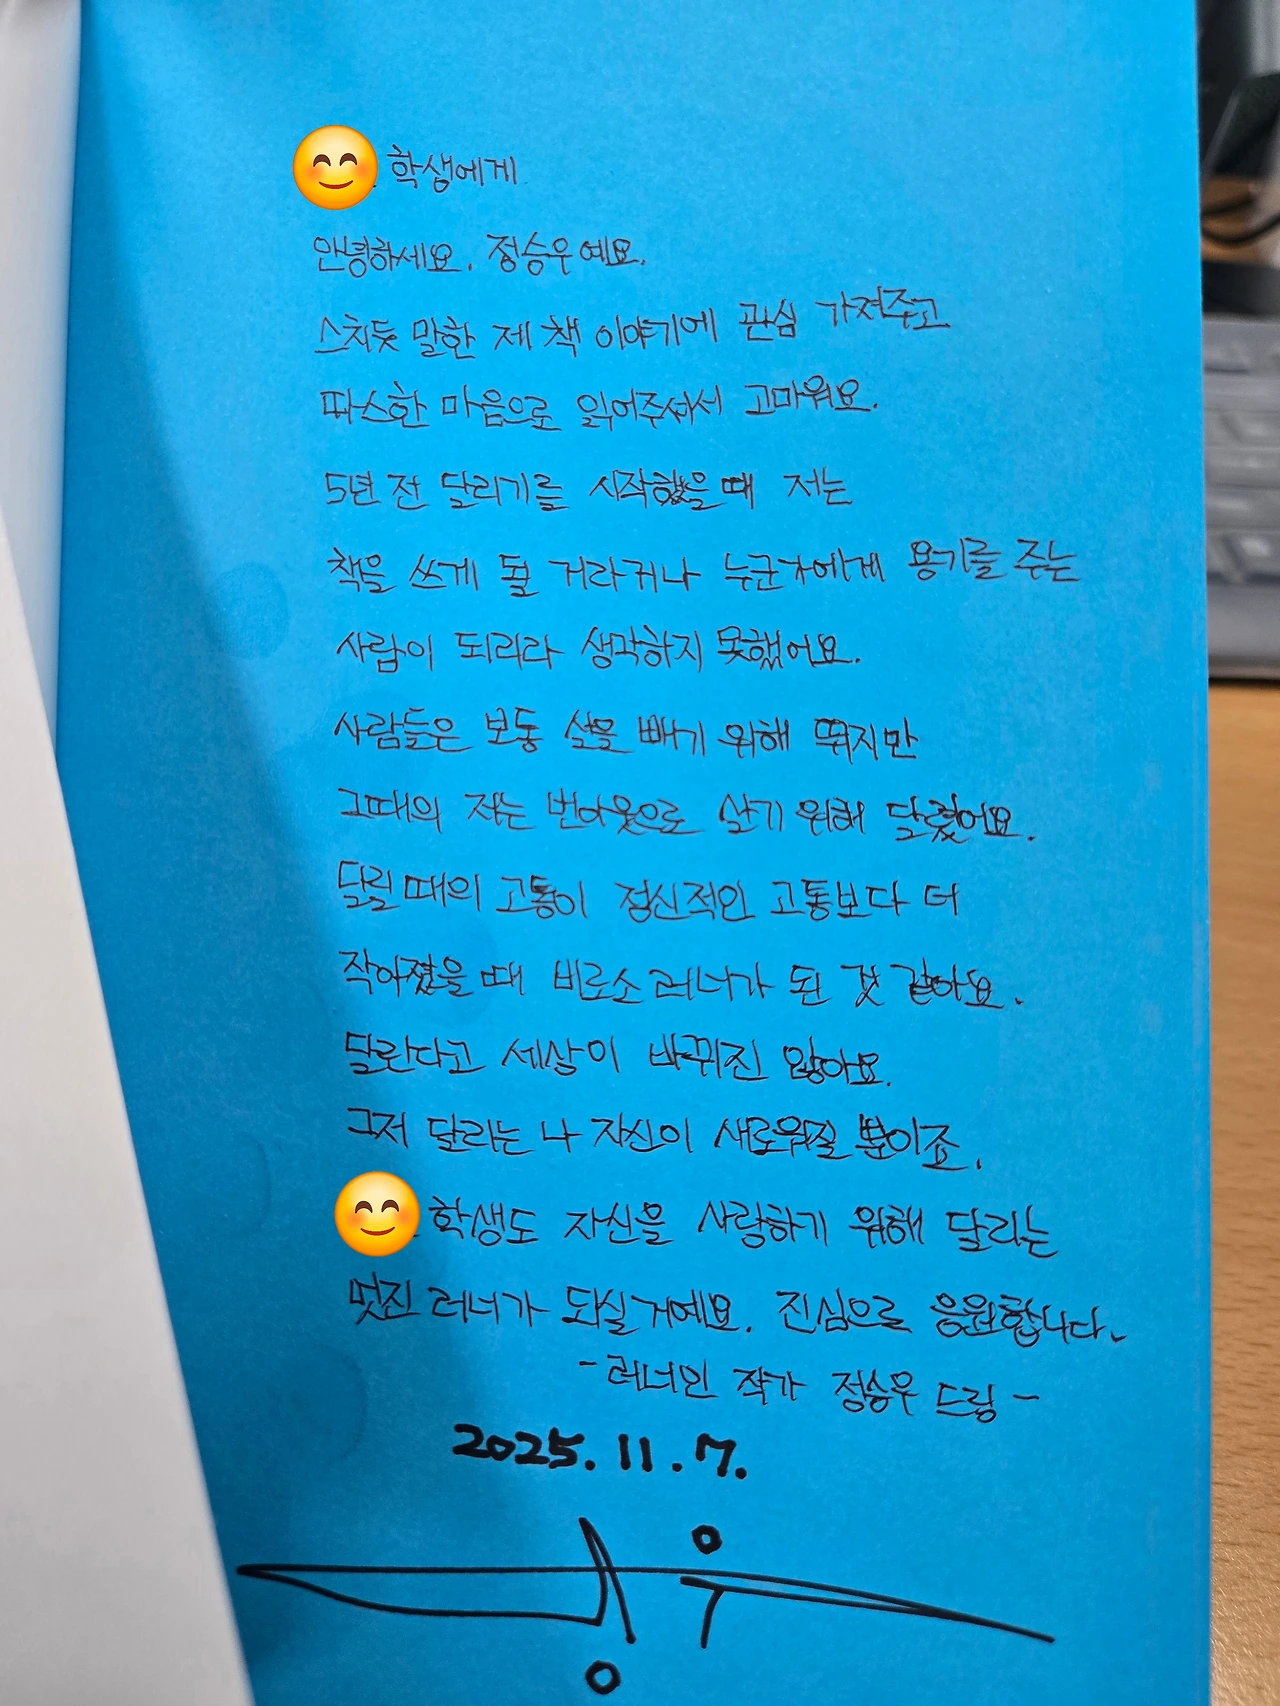 학생에게
안녕하세요. 정승우예요.
스치듯 말한 제 책 이야기에 관심 가져주고
따스한 마음으로 읽어주셔서 고마워요.
5년 전 달리기를 시작했을 때 저는
책을 쓰게 될 거라거나 누군가에게 용기를 주는
사람이 되리라 생각하지 못했어요.
사람들은 보통 살을 빼기 위해 뛰지만
그때의 저는 번아웃으로 살기 위해 달렸어요.
달릴 때의 고통이 정신적인 고통보다 더
작아졌을 때 비로소 러너가 된 것 같아요.
달린다고 세상이 바뀌진 않아요.
그저 달리는 나 자신이 새로워질 뿐이죠.
학생도 자신을 사랑하기 위해 달리는
멋진 러너가 되실거예요. 진심으로 응원합니다.
- 러너인 작가 정승우 드림 -
2025. 11. 7.